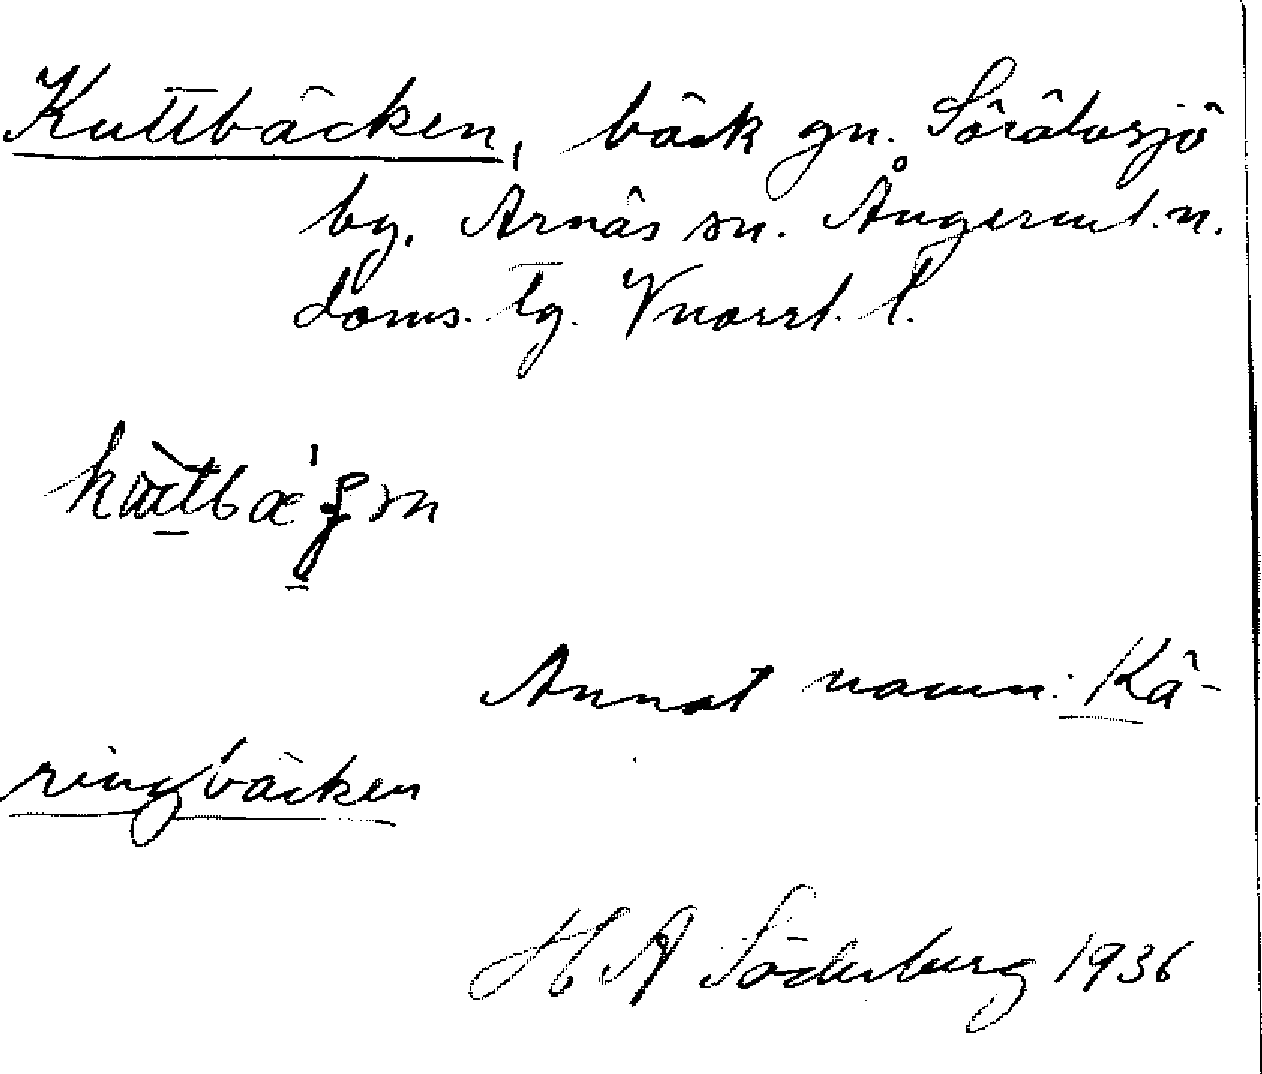 Kuttbäcken, bäck gn. Sörätosjö
by, Arnäs sn. Ångerml. n.
doms. tg. Vnorrl. l.
Annat namn: Kä-
ringbäcken
H A Söderberg 1936